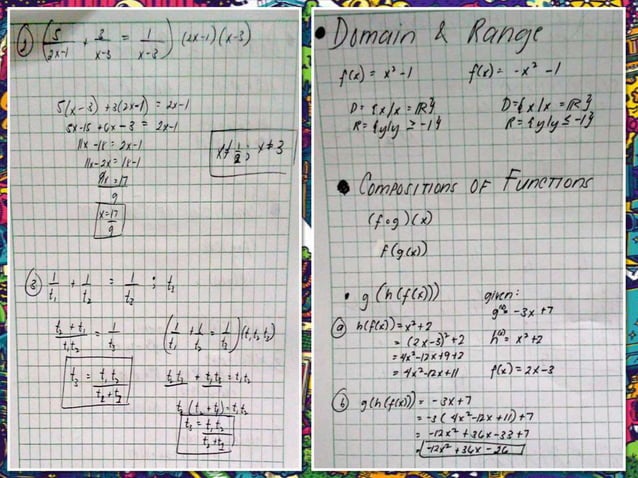 2) (5/2x-1 + 3/x-3 = 1/x-3) (2x-1)(x-3)
5(x-3) + 3(2x-1) = 2x-1
5x-15 + 6x-3 = 2x-1
11x -18 = 2x-1
11x-2x = 18-1
9x = 17
9
x=17/9
x≠ 1/2 ; x≠3
3) 1/t₁ + 1/t₂ = 1/t₃ ; t₃
t₂ + t₁/t₁t₂ = 1/t₃
t₃ = t₁t₂/t₂+t₁
(1/t₁ + 1/t₂ = 1/t₃)(t₁t₂t₃)
t₂t₃ + t₁t₃ = t₁t₂
t₃(t₂+t₁) = t₁t₂
t₃ = t₁t₂/t₂+t₁
• Domain & Range
f(x) = x² -1 f(x) = -x² -1
D = {x/x = ℝ} D={x/x = ℝ}
R = {y/y ≥ -1} R = {y/y ≤ -1}
• COMPOSITIONS OF FUNCTIONS
(f∘g)(x)
f(g(x))
• g(h(f(x))) given:
g(x) = -3x +7
a) h(f(x)) = x²+2
= (2x-3)²+2 h(x) = x²+2
= 4x²-12x+9+2
= 4x²-12x+11 f(x) = 2x-3
b) g(h(f(x))) = -3x+7
= -3(4x²-12x+11)+7
= -12x² +36x -33+7
= -12x² +36x -26